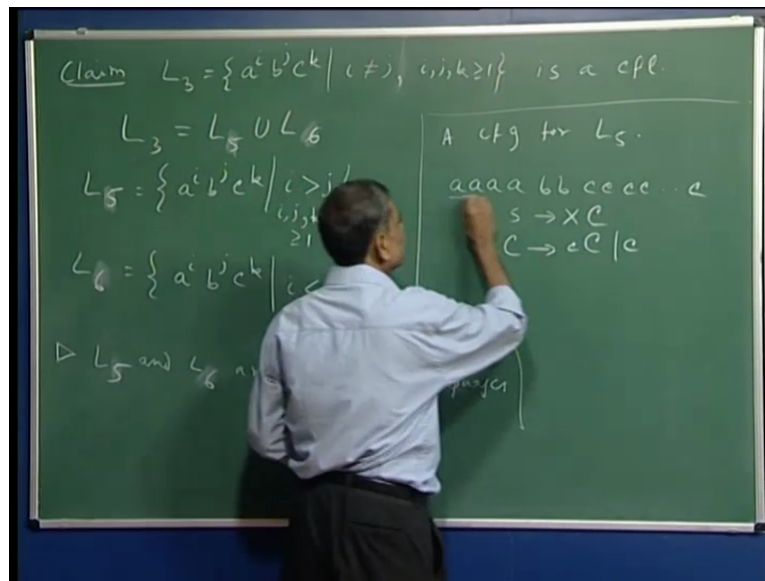 Claim L₃ = { aⁱ bʲ cᵏ | i ≠ j, i,j,k ≥ 1 } is a cfl.
L₃ = L₅ ∪ L₆
L₅ = { aⁱ bʲ cᵏ | i > j
i, j,
≥ 1
L₆ = { aⁱ bʲ cᵏ | i <
▷ L₅ and L₆
A cfg for L₅.
a a a a b b c c c c .. c
S → X C
C → c C | c